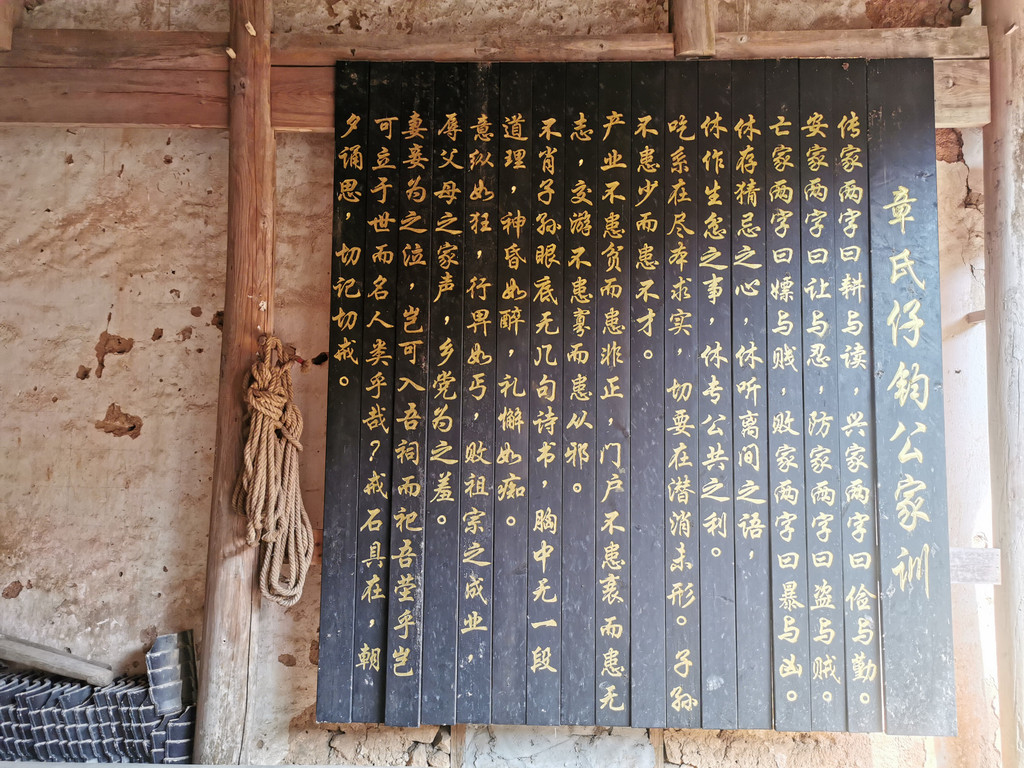 章氏仔钧公家训
传家两字曰耕与读，兴家两字曰俭与勤。
安家两字曰让与忍，防家两字曰盗与贼。
亡家两字曰嫖与贱，败家两字曰暴与凶。
休存猜忌之心，休听离间之语，
休作生忿之事，休专公共之利。
吃系在尽本求实，切要在潜消未形。子孙
不患少而患不才。
产业不患贫而患非正，门户不患衰而患无
志，交游不患寡而患从邪。
不肖子孙眼底无几句诗书，胸中无一段
道理，神昏如醉，礼懈如痴。
意纵如狂，行畀如丐，败祖宗之成业，
辱父母之家声，乡党为之羞。
妻妾为之泣，岂可入吾祠而祀吾茔乎岂
可立于世而名人类乎哉？戒石具在，朝
夕诵思，切记切戒。